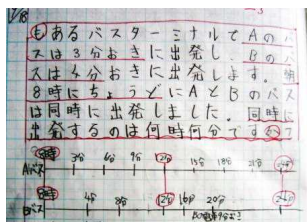 もあるバスターミナルでAのバ
スは3分おきに出発し、Bのバ
スは4分おきに出発します。朝
8時にちょうどにAとBのバス
は同時に出発しました。同時に
出発するのは何時何分ですか?
8時 3分 6分 9分 12分 15分 18分 21分 24分
Aバス
8時 4分 8分 12分 16分 20分 24分
Bバス